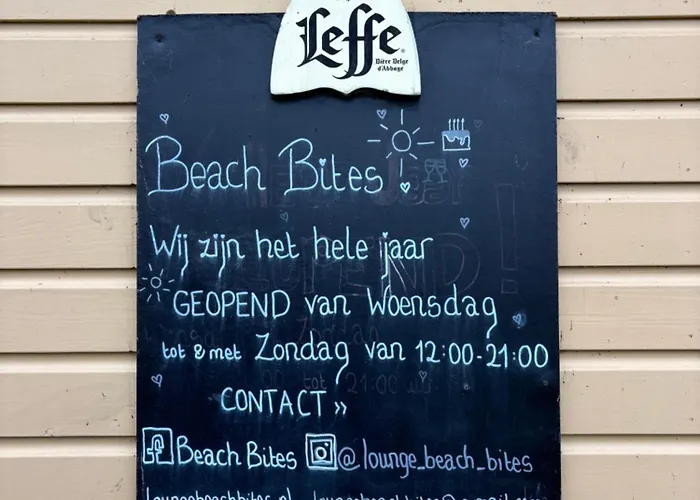 Leffe
Bière Belge
d'Abbaye
Beach Bites
Wij zijn het hele ijaar
GEOPEND van Woensdag
tot & met Zondag van 12:00-21:00
CONTACT »
Beach Bites @lounge_beach_bites